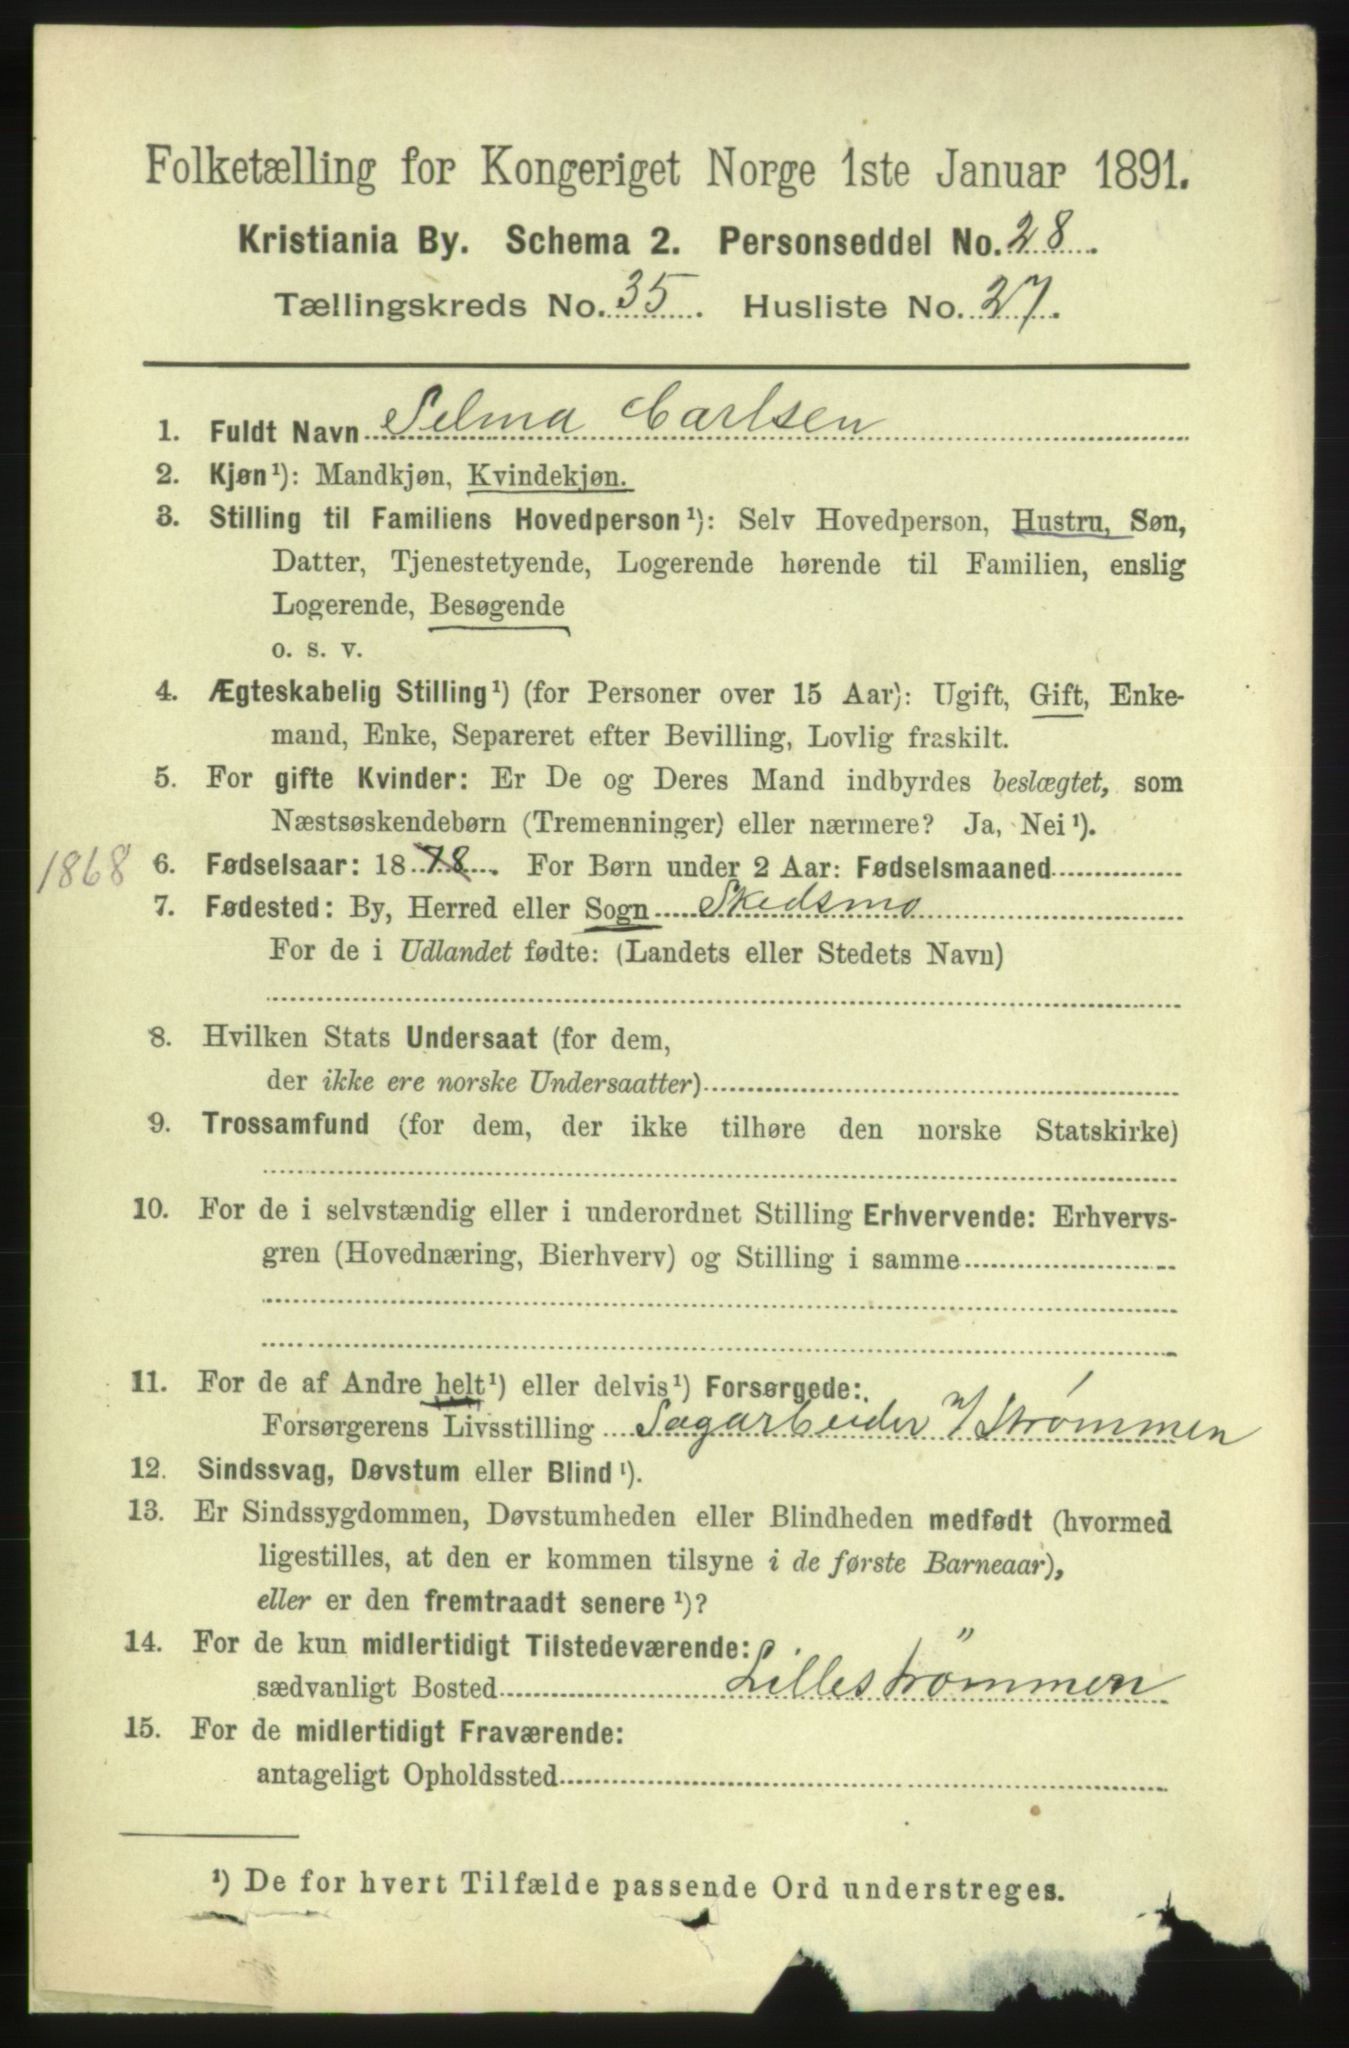 Folketælling for Kongeriget Norge 1ste Januar 1891.
Kristiania By. Schema 2. Personseddel No. 28.
Tællingskreds No. 35. Husliste No. 27.
1. Fuldt Navn Selma Carlsen
2. Kjøn¹): Mandkjøn, Kvindekjøn.
3. Stilling til Familiens Hovedperson¹): Selv Hovedperson, Hustru, Søn,
Datter, Tjenestetyende, Logerende hørende til Familien, enslig
Logerende, Besøgende
o. s. v.
4. Ægteskabelig Stilling¹) (for Personer over 15 Aar): Ugift, Gift, Enke-
mand, Enke, Separeret efter Bevilling, Lovlig fraskilt.
5. For gifte Kvinder: Er De og Deres Mand indbyrdes beslægtet, som
Næstsøskendebørn (Tremenninger) eller nærmere? Ja, Nei¹).
1868 6. Fødselsaar: 1878. For Børn under 2 Aar: Fødselsmaaned
7. Fødested: By, Herred eller Sogn Skedsmo
For de i Udlandet fødte: (Landets eller Stedets Navn)
8. Hvilken Stats Undersaat (for dem,
der ikke ere norske Undersaatter)
9. Trossamfund (for dem, der ikke tilhøre den norske Statskirke)
10. For de i selvstændig eller i underordnet Stilling Erhvervende: Erhvervs-
gren (Hovednæring, Bierhverv) og Stilling i samme
11. For de af Andre helt¹) eller delvis¹) Forsørgede:
Forsørgerens Livsstilling Sagarbeider v/ Strømmen
12. Sindssvag, Døvstum eller Blind¹).
13. Er Sindssygdommen, Døvstumheden eller Blindheden medfødt (hvormed
ligestilles, at den er kommen tilsyne i de første Barneaar),
eller er den fremtraadt senere¹)?
14. For de kun midlertidigt Tilstedeværende:
sædvanligt Bosted Lilleströmmen
15. For de midlertidigt Fraværende:
antageligt Opholdssted
¹) De for hvert Tilfælde passende Ord understreges.